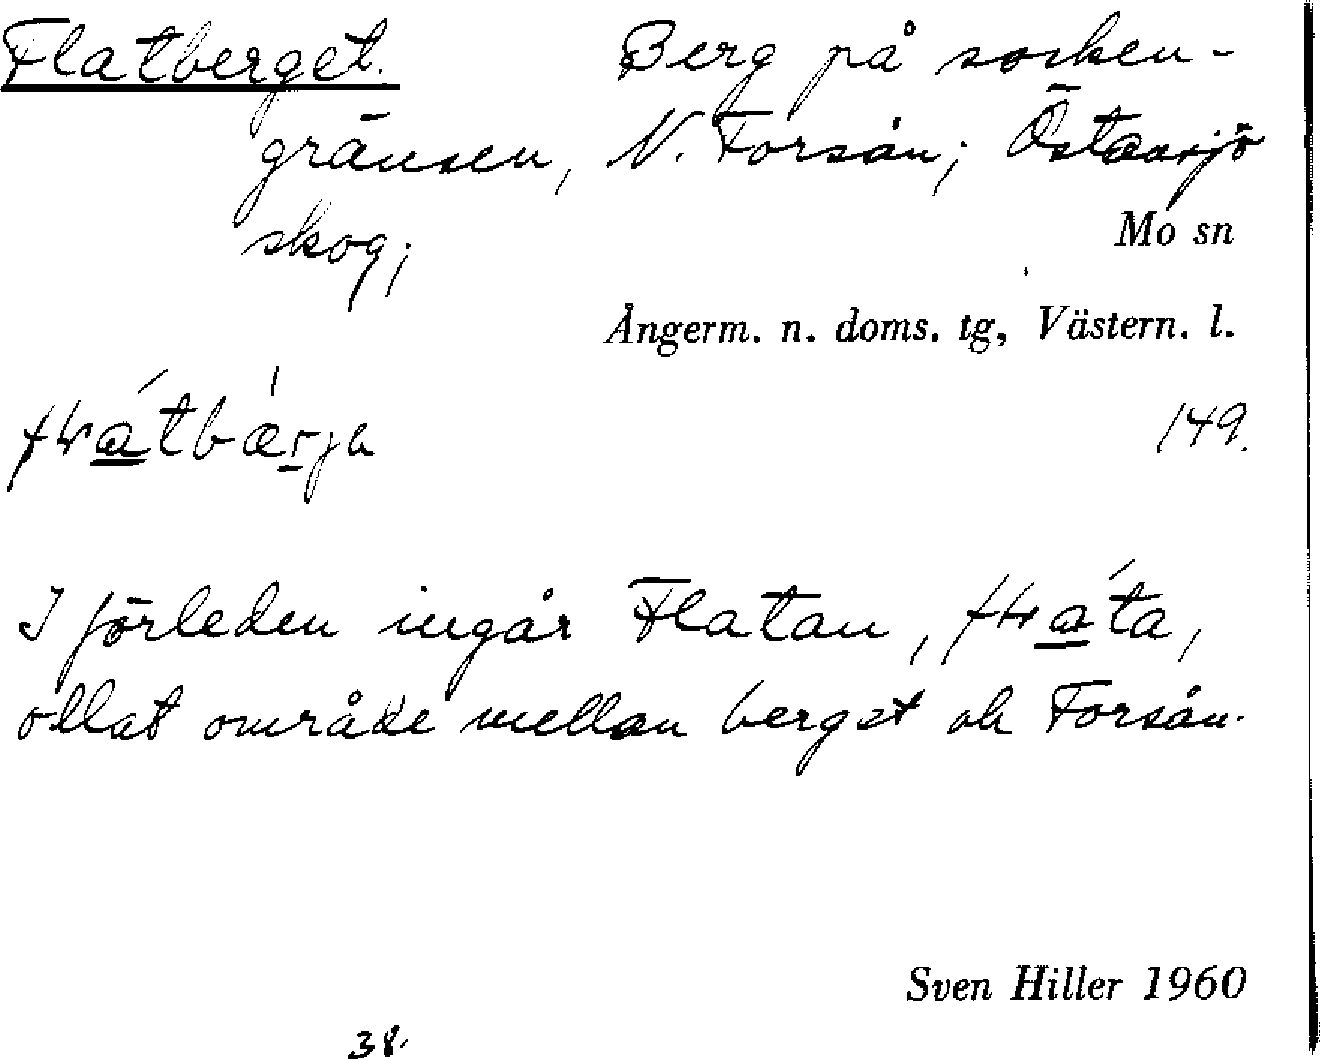 Flatberget. Berg på socken-
gränsen, N. Forsån; Östansjö
skog;
Mo sn
Ångerm. n. doms. tg, Västern. l.
149.
I förleden ingår Flatan,
området mellan berget och Forsån.
Sven Hiller 1960
38.